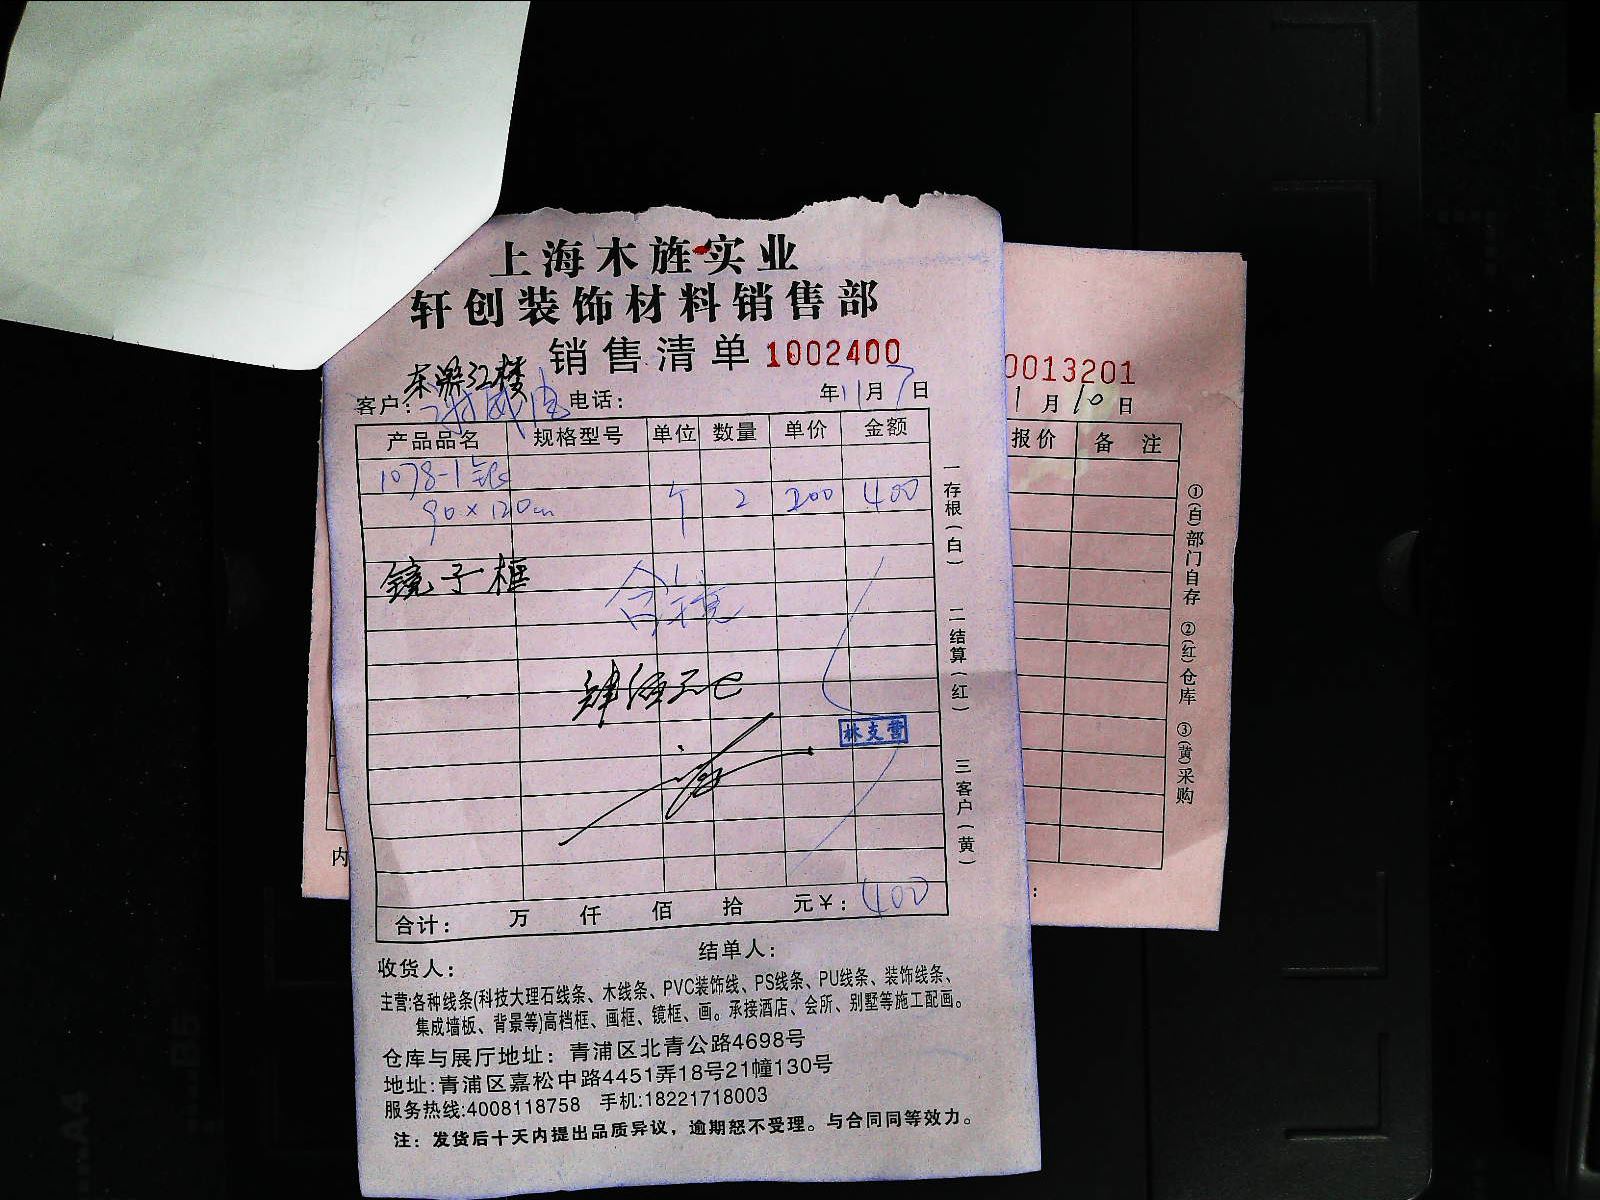 上海木旌实业
轩创装饰材料销售部
销售清单 1002400
客户: 电话: 年11月7日
产品品名 规格型号 单位 数量 单价 金额
1078-1银
90×120cm 个 2 200 400
镜子框 含镜
肆佰元
林支营
合计: 万 仟 佰 拾 元¥: 400
结单人:
收货人:
主营:各种线条(科技大理石线条、木线条、PVC装饰线、PS线条、PU线条、装饰线条、
集成墙板、背景等)高档框、画框、镜框、画。承接酒店、会所、别墅等施工配画。
仓库与展厅地址: 青浦区北青公路4698号
地址:青浦区嘉松中路4451弄18号21幢130号
服务热线:4008118758 手机:18221718003
注: 发货后十天内提出品质异议, 逾期怒不受理。与合同同等效力。
一存根(白) 二结算(红) 三客户(黄)
0013201
1月10日
报价 备注
①(白)部门自存 ②(红)仓库 ③(黄)采购
内